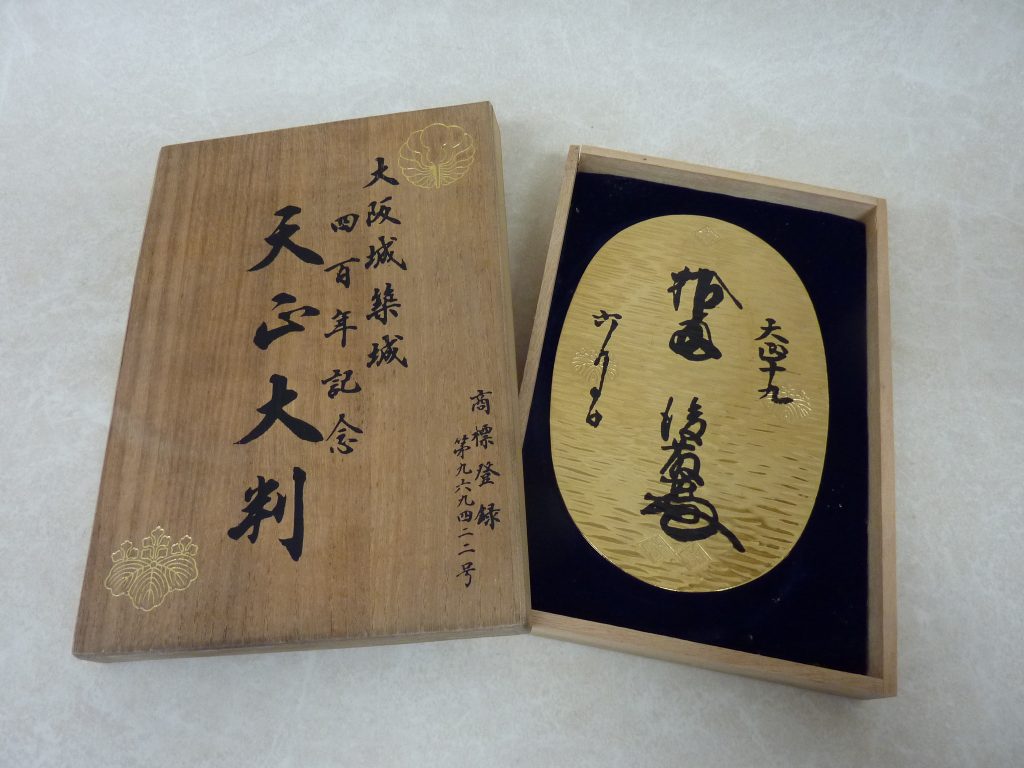 大阪城築城
四百年記念
天正大判
商標登録
第九六九四二二号
天正十九
拾両 後藤